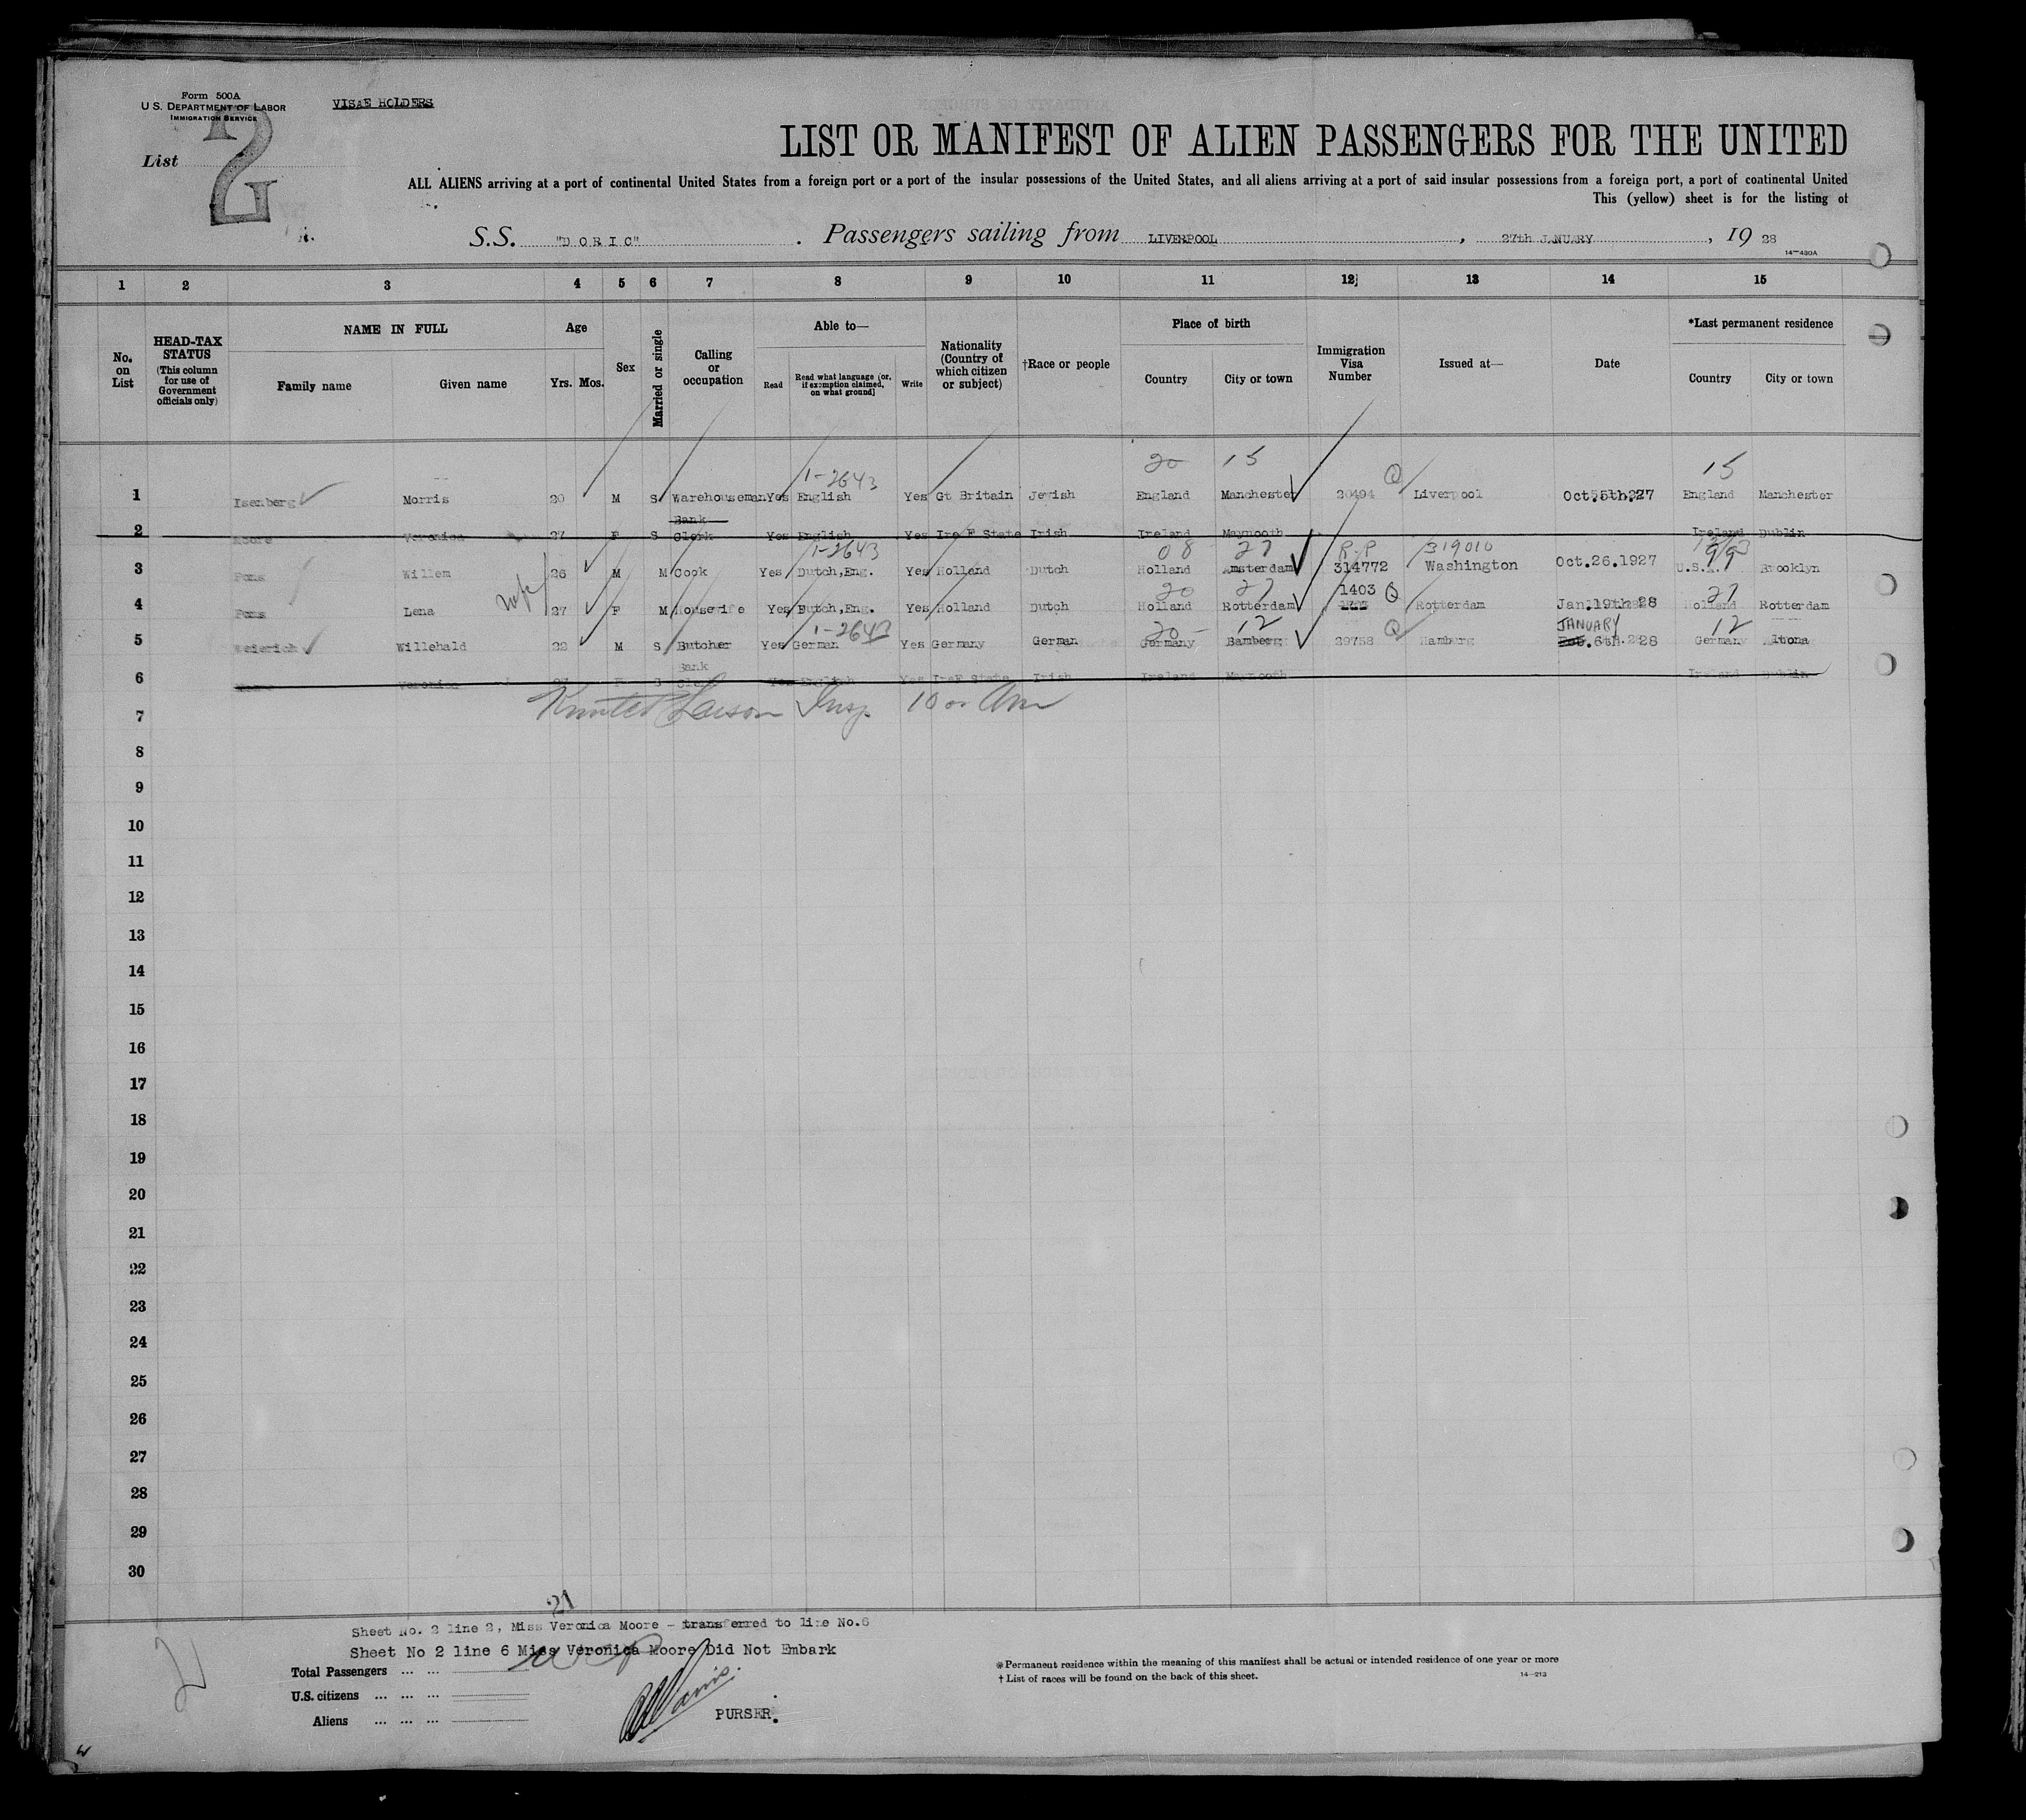 Form 500A
U.S. DEPARTMENT OF LABOR
IMMIGRATION SERVICE
VISAE HOLDERS
List 2
LIST OR MANIFEST OF ALIEN PASSENGERS FOR THE UNITED
ALL ALIENS arriving at a port of continental United States from a foreign port or a port of the insular possessions of the United States, and all aliens arriving at a port of said insular possessions from a foreign port, a port of continental United
This (yellow) sheet is for the listing of
S.S. "DORIC" . Passengers sailing from LIVERPOOL , 27th JANUARY , 19 28
14—430A
1 2 3 4 5 6 7 8 9 10 11 12 13 14 15
No. on List
HEAD-TAX STATUS (This column for use of Government officials only)
NAME IN FULL
Family name Given name
Age
Yrs. Mos.
Sex
Married or single
Calling or occupation
Able to—
Read Read what language (or, if exemption claimed, on what ground) Write
Nationality (Country of which citizen or subject)
†Race or people
Place of birth
Country City or town
Immigration Visa Number
Issued at—
Date
*Last permanent residence
Country City or town
1-2643 20 15 Q 15
1 Isenberg Morris 20 M S Warehouseman Yes English Yes Gt Britain Jewish England Manchester 20494 Liverpool Oct.5th.27 England Manchester
Bank
2 Moore Veronica 27 F S Clerk Yes English Yes Ire F State Irish Ireland Maynooth Ireland Dublin
1-2643 08 27 R.P 319010 99
3 Fons Willem 26 M M Cook Yes Dutch,Eng. Yes Holland Dutch Holland Amsterdam 314772 Washington Oct.26.1927 U.S.A. Brooklyn
wife 20 27 1403 Q 27
4 Fons Lena 27 F M Housewife Yes Dutch,Eng. Yes Holland Dutch Holland Rotterdam Rotterdam Jan.19th 28 Holland Rotterdam
1-2643 20 12 Q JANUARY 12
5 Weierich Willehald 22 M S Butcher Yes German Yes Germany German Germany Bamberg 29758 Hamburg 6th. 28 Germany Altona
Bank
6 Moore Veronica 27 F S Clerk Yes English Yes IreF State Irish Ireland Maynooth Ireland Dublin
7 Larson Insp 10 00 Am
8
9
10
11
12
13
14
15
16
17
18
19
20
21
22
23
24
25
26
27
28
29
30
21
Sheet No. 2 line 2, Miss Veronica Moore - transferred to line No.6
Sheet No 2 line 6 Miss Veronica Moore Did Not Embark
Total Passengers ... ...
U.S. citizens ... ... ...
Aliens ... ... ...
PURSER.
*Permanent residence within the meaning of this manifest shall be actual or intended residence of one year or more
†List of races will be found on the back of this sheet.
14—213